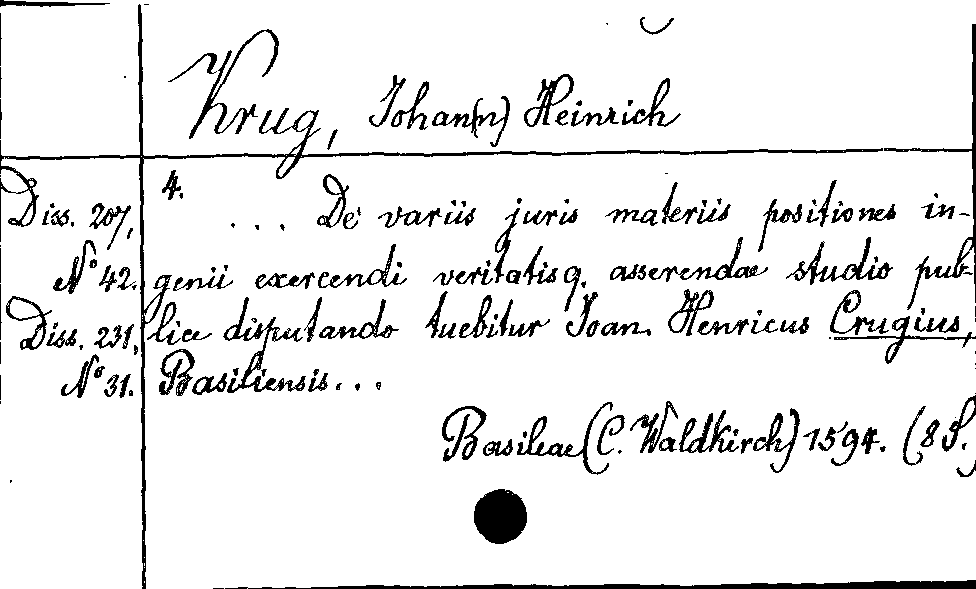 Krug, Johan(n) Heinrich
4.
Diss. 207, ... De variis juris materiis positiones in-
No 42. genii exercendi veritatisq. asserendae studio pub-
Diss. 231, lice disputando tuebitur Ioan. Henricus Crugius,
No 31. Basiliensis...
Basileae (C. Waldkirch) 1594. (8 S.)